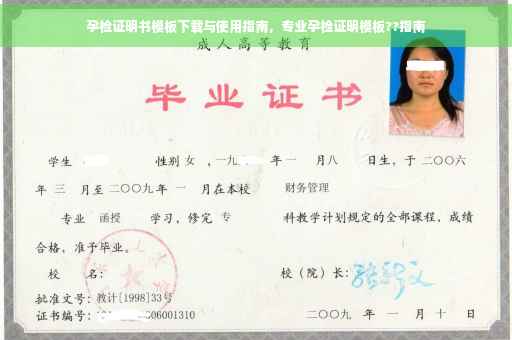 孕检证明书模板下载与使用指南，专业孕检证明模板??指南
成人高等教育
毕业证书
学生 性别 女 ，一九 年 一 月 八 日生，于 二〇〇六
年 三 月至 二〇〇九 年 一 月在本校 财务管理
专业 函授 学习，修完 专 科教学计划规定的全部课程，成绩
合格，准予毕业。
校 名： 校（院）长：
批准文号：教计[1998]33号
证书编号： 006001310 二〇〇九 年 一 月 十 日